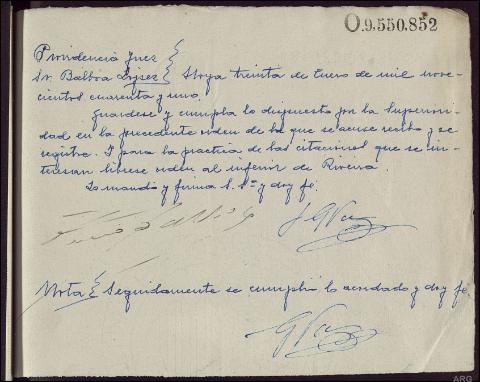 O.9.550.852
Providencia Juez
Sr. Balboa López } Noya treinta de Enero de mil nove-
cientos cuarenta y uno.
Guardese y cumpla lo dispuesto por la Superiori-
dad en la precedente orden de la que se acuse recibo y se
registre. Y para la practica de las citaciones que se in-
teresan librese orden al inferior de Riveira.
Lo mandó y firma S. Sª y doy fe.
Nota } Seguidamente se cumplió lo acordado y doy fe.
ARG